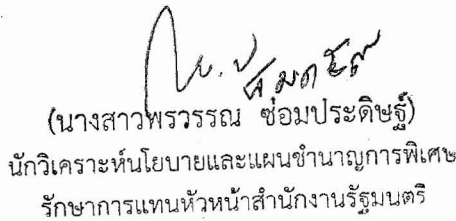 (นางสาวพรวรรณ ซ่อมประดิษฐ์)
นักวิเคราะห์นโยบายและแผนชำนาญการพิเศษ
รักษาการแทนหัวหน้าสำนักงานรัฐมนตรี